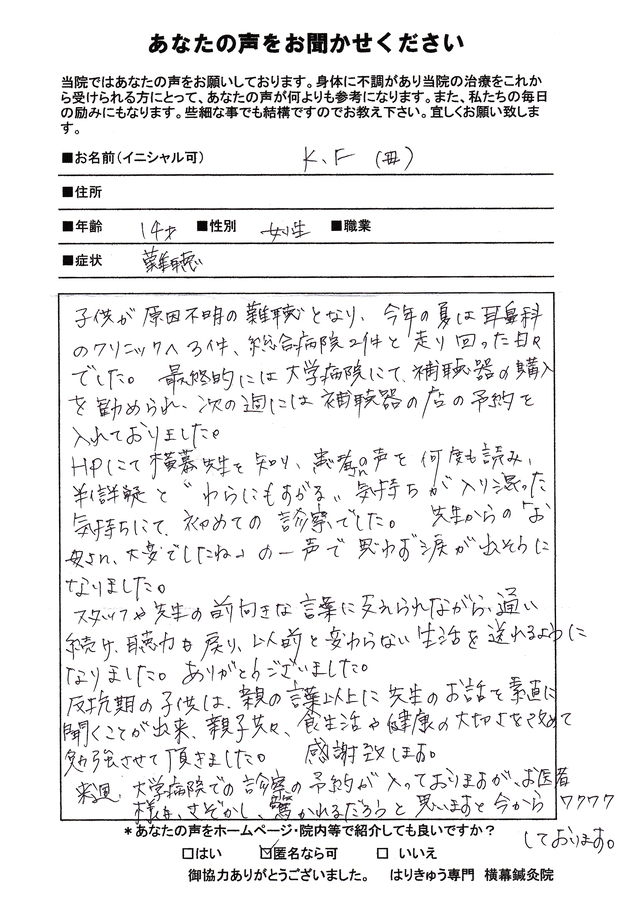 あなたの声をお聞かせください
当院ではあなたの声をお願いしております。身体に不調があり当院の治療をこれか
ら受けられる方にとって、あなたの声が何よりも参考になります。また、私たちの毎日
の励みにもなります。些細な事でも結構ですのでお教え下さい。宜しくお願い致しま
す。
■お名前(イニシャル可) K.F (母)
■住所
■年齢 14才 ■性別 女性 ■職業
■症状 難聴
子供が原因不明の難聴となり、今年の夏は耳鼻科
のクリニックへ3件、総合病院2件と走り回った日々
でした。最終的には大学病院にて、補聴器の購入
を勧められ、次の週には補聴器の店の予約を
入れておりました。
HPにて横幕先生を知り、患者の声を何度も読み、
半信半疑と"わらにもすがる"気持ちが入り混った
気持ちにて、初めての診察でした。先生からの「お
母さん、大変でしたね」の一声で思わず涙が出そうに
なりました。
スタッフや先生の前向きな言葉に支えられながら、通い
続け、聴力も戻り、以前と変わらない生活を送れるように
なりました。ありがとうございました。
反抗期の子供は、親の言葉以上に先生のお話を素直に
聞くことが出来、親子共々、食生活や健康の大切さを改めて
勉強させて頂きました。感謝致します。
来週、大学病院での診察の予約が入っておりますが、お医者
様は、さぞかし、驚かれるだろうと思いますと今からワクワク
しております。
*あなたの声をホームページ・院内等で紹介しても良いですか?
□はい ☑匿名なら可 □ いいえ
御協力ありがとうございました。 はりきゅう専門 横幕鍼灸院